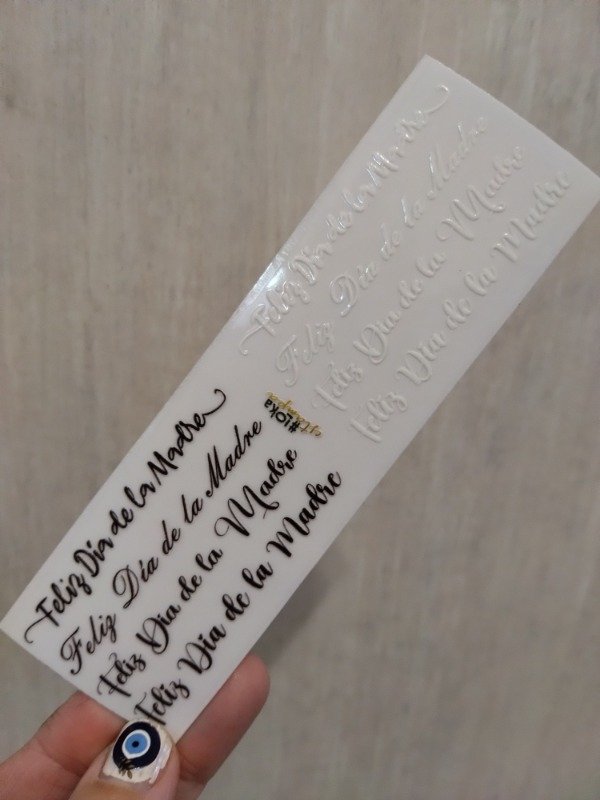 Feliz Día de la Madre
Feliz Día de la Madre
Feliz Dia de la Madre
Feliz Dia de la Madre
#LOKa
Feliz Día de la Madre
Feliz Día de la Madre
Feliz Dia de la Madre
Feliz Dia de la Madre